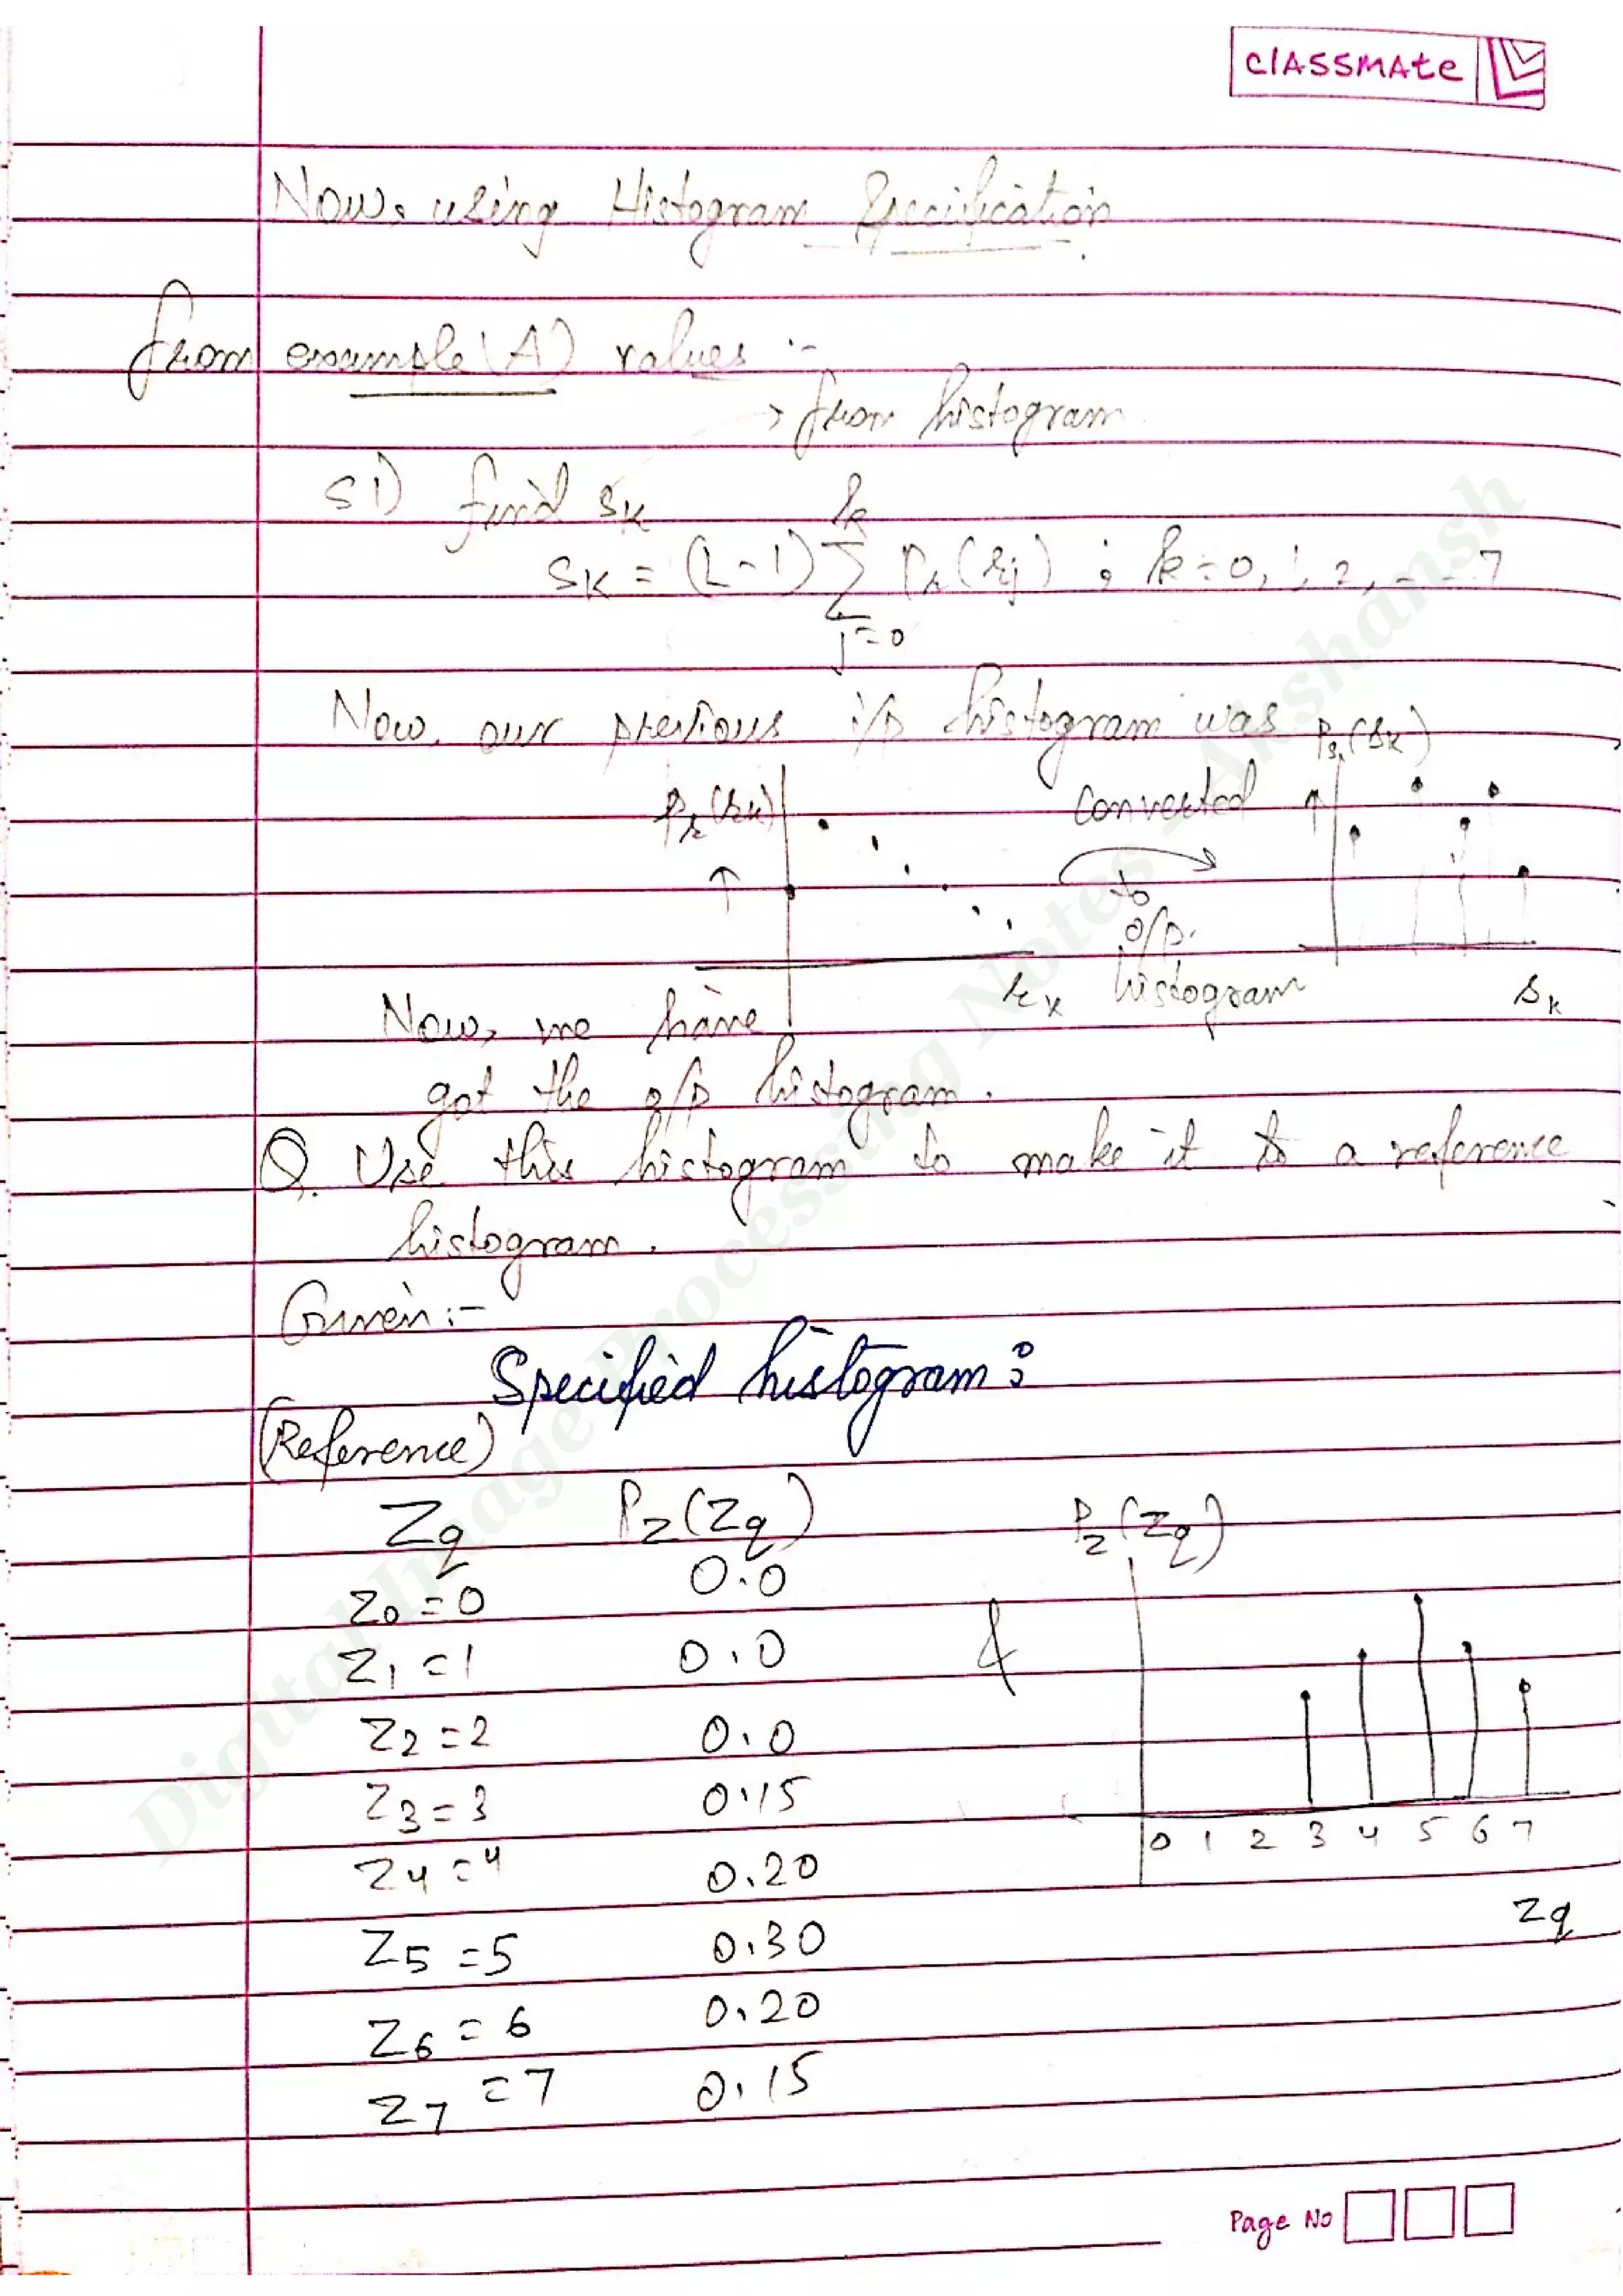 classmate
Now, using Histogram Specification
from example (A) values :-
→ from histogram
S1) find sₖ
sₖ = (L-1) Σ Pᵣ(rⱼ) ; k=0, 1, 2, - - 7
k
j=0
Now, our previous i/p histogram was
Pₛ(sₖ)
Pᵣ(rₖ)
converted
to
o/p
histogram
rₖ
sₖ
Now, we have
got the o/p histogram.
Q. Use this histogram to make it to a reference
histogram.
Given:-
Specified histogram:
(Reference)
Zq Pz(Zq)
Z0 = 0 0.0
Z1 = 1 0.0
Z2 = 2 0.0
Z3 = 3 0.15
Z4 = 4 0.20
Z5 = 5 0.30
Z6 = 6 0.20
Z7 = 7 0.15
&
Pz(Zq)
0 1 2 3 4 5 6 7
Zq
Page No
Digital Image Processing Notes Akshansh